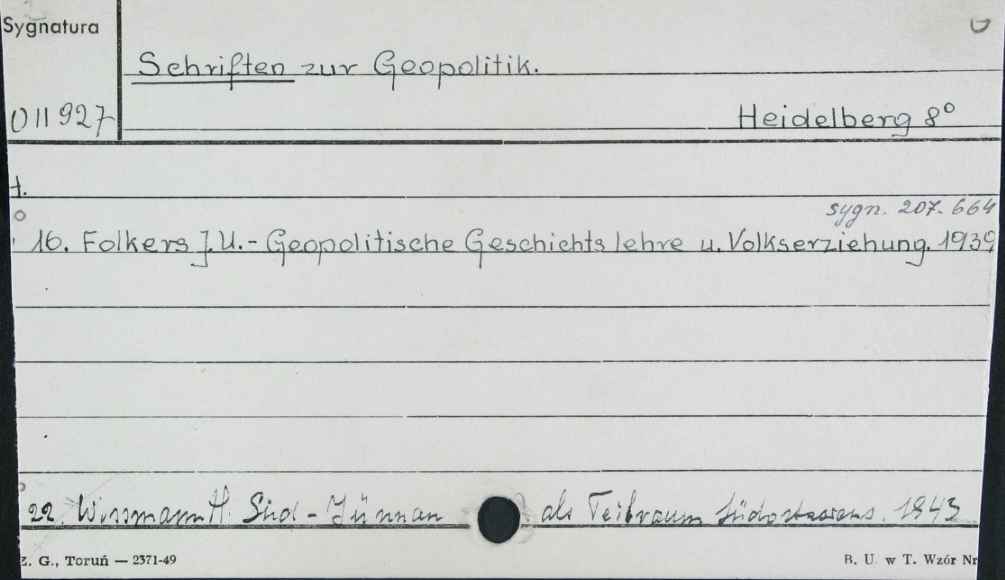 Sygnatura
Schriften zur Geopolitik.
011927
Heidelberg 8°
t.
sygn. 207.664
16. Folkers J.U. - Geopolitische Geschichtslehre u. Volkserziehung. 1939
22. Wissmann H. Süd - Jünnan als Teilraum Südostasiens. 1943
Z. G., Toruń — 2371-49
B. U. w T. Wzór Nr